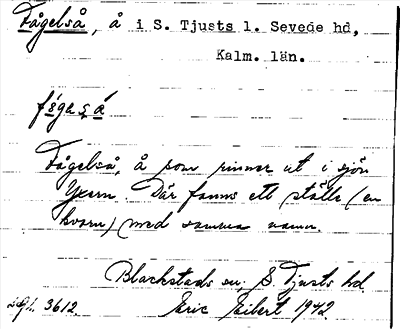 Fågelså, å i S. Tjusts l. Sevede hd,
Kalm. län.
Fågelså, å som rinner ut i sjön
Yxern. Där fanns ett ställe (en
kvarn) med samma namn.
Blackstads sn, S. Tjusts hd.
3612 Eric Eibert 1942